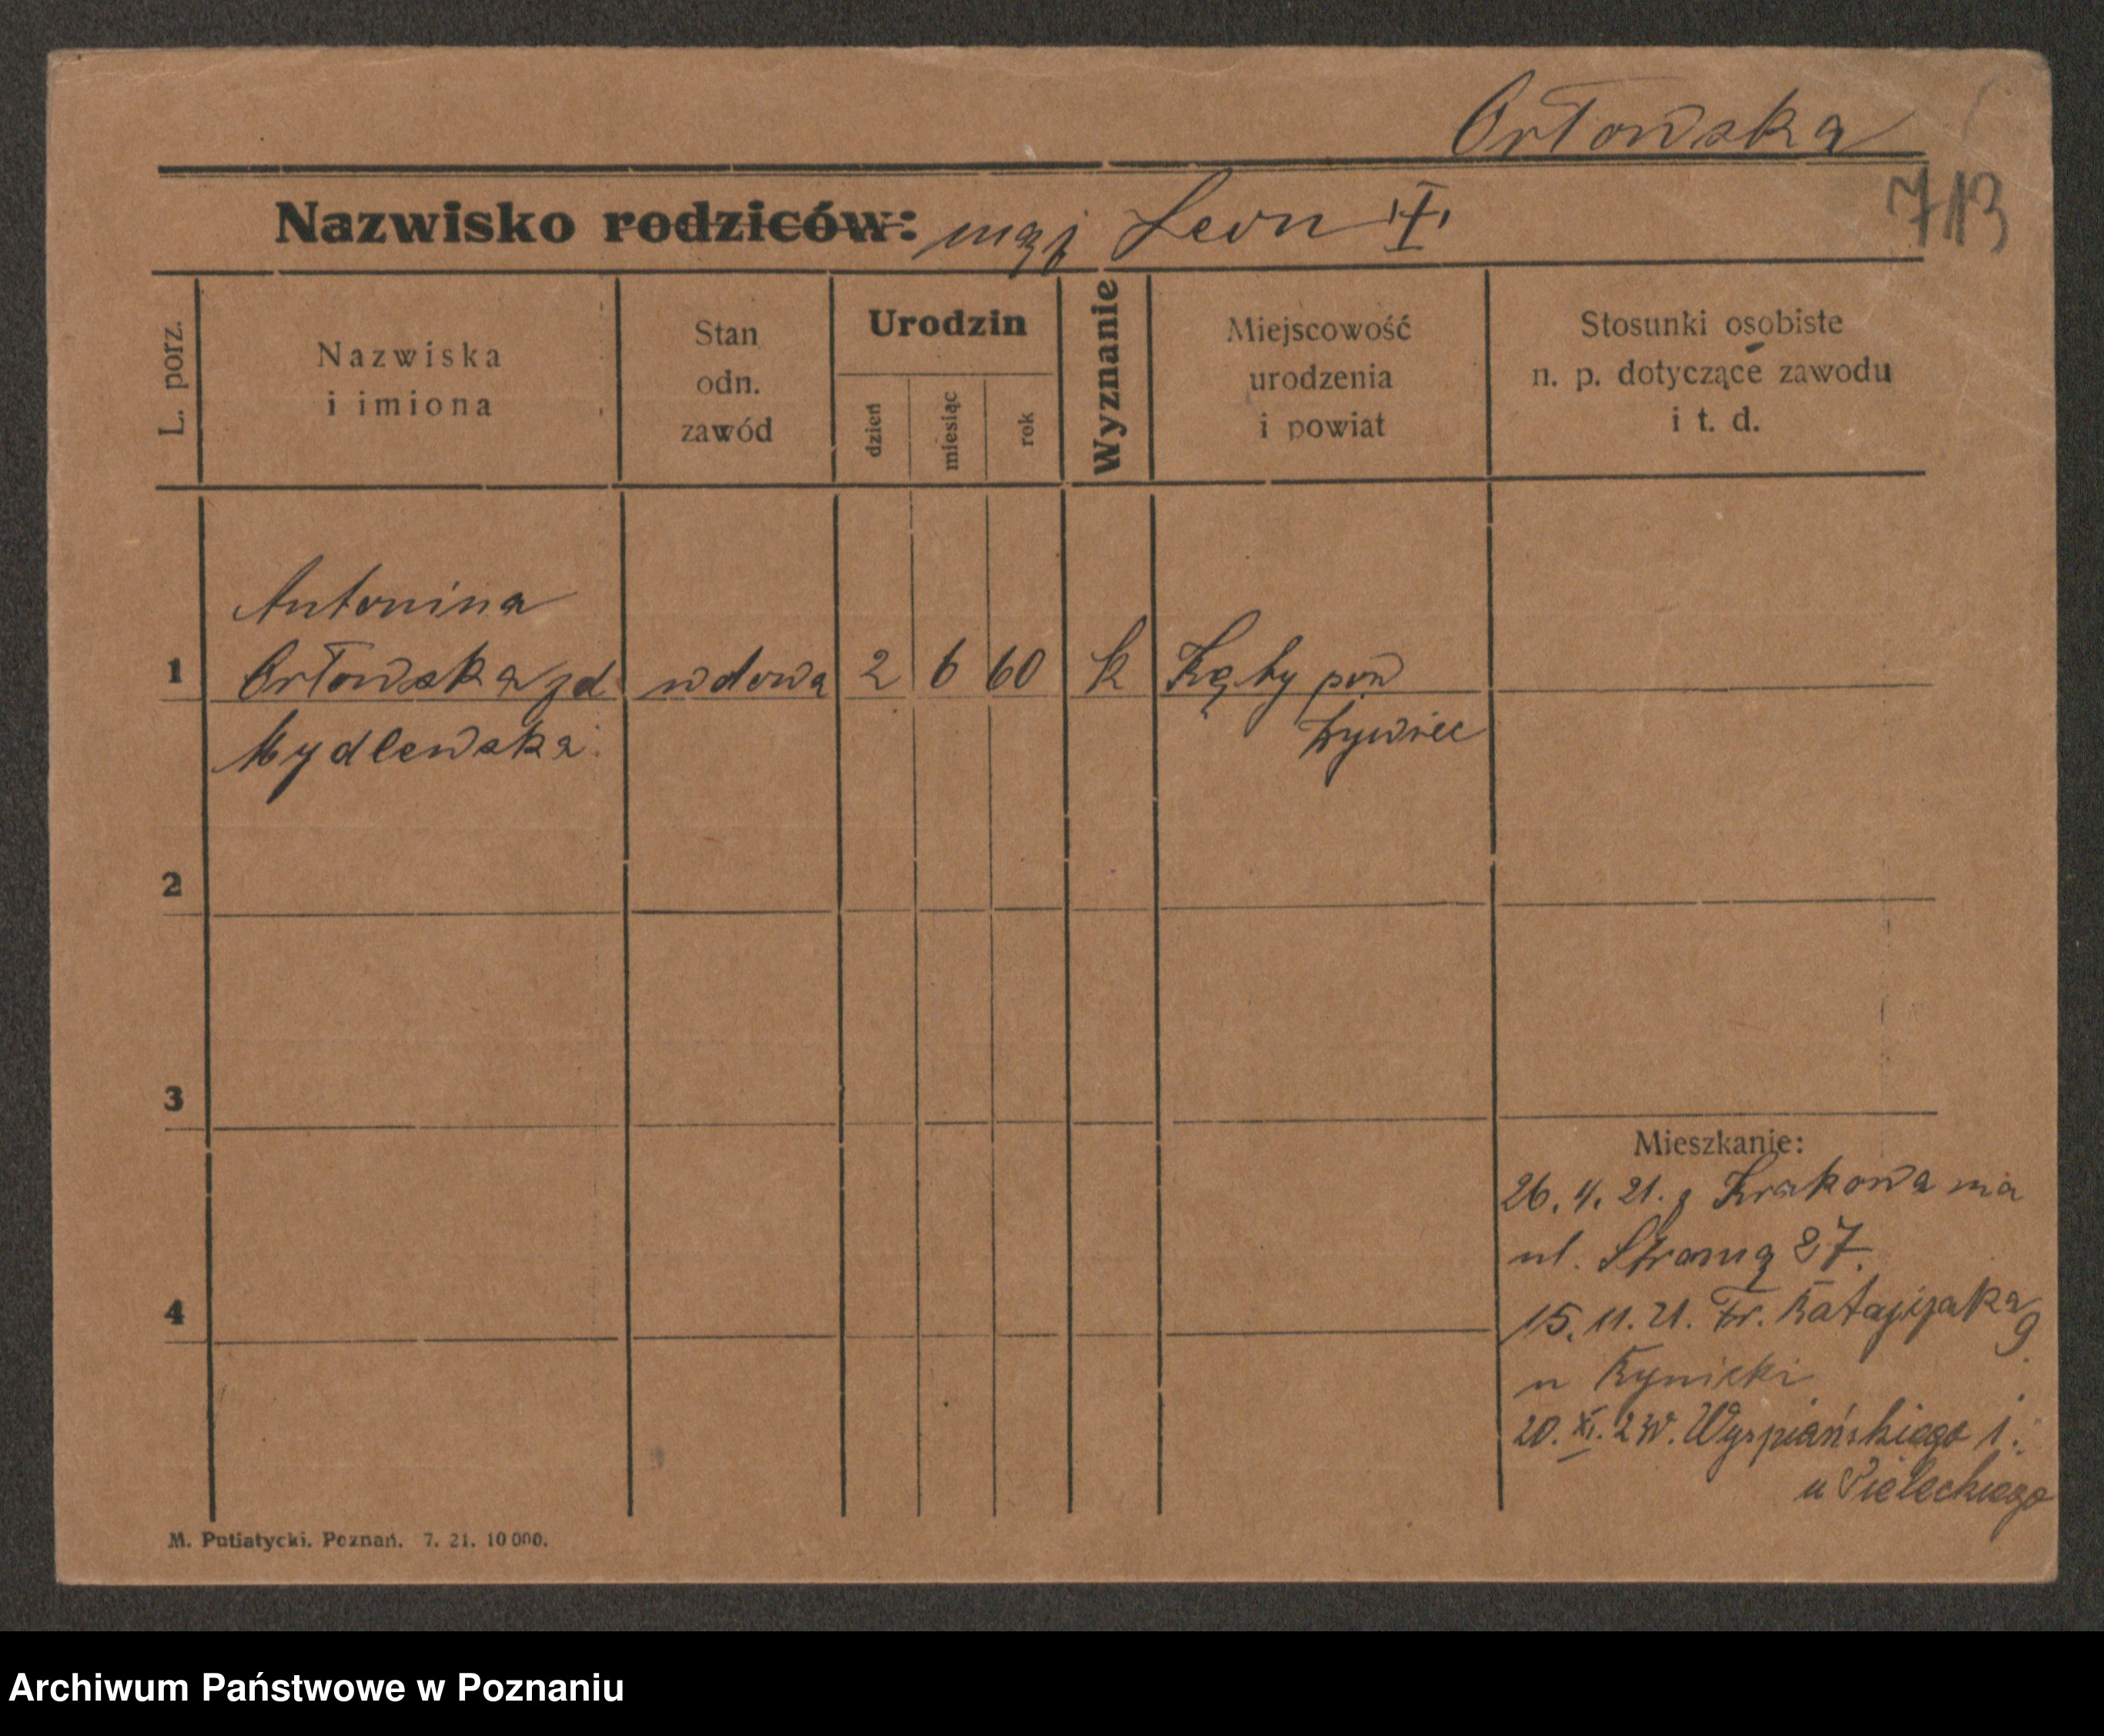 Orłowska
713
Nazwisko rodziców: mąż Leon I.
L. porz.
Nazwiska
i imiona
Stan
odn.
zawód
Urodzin
dzień
miesiąc
rok
Wyznanie
Miejscowość
urodzenia
i powiat
Stosunki osobiste
n. p. dotyczące zawodu
i t. d.
Antonina
1 Orłowska zd wdowa 2 6 60 k Kęty pow
Mydlewska Żywiec
2
3
Mieszkanie:
26. 4. 21. z Krakowa na
ul. Stromą 27.
4
15. 11. 21. Fr. Ratajczaka 9
u
20. XI. W. Wyspiańskiego 1.
u Pieleckiego
M. Putiatycki. Poznań. 7. 21. 10 000.
Archiwum Państwowe w Poznaniu